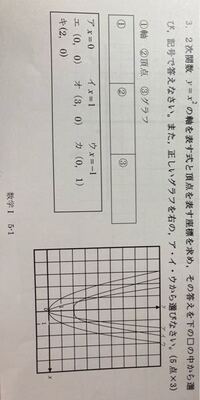 3. 2次関数 y=x² の軸を表す式と頂点を表す座標を求め、その答えを下の□の中から選
び、記号で答えなさい。また、正しいグラフを右の、ア・イ・ウから選びなさい。(5点×3)
①軸 ②頂点 ③グラフ
① ② ③
ア x=0 イ x=1 ウ x=-1
エ (0, 0) オ (3, 0) カ (0, 1)
キ (2, 0)
y
x
数学Ⅰ 5-1